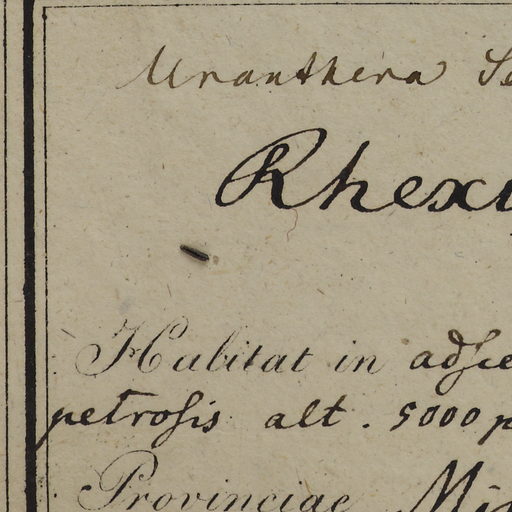 Uranthera
Rhexi
Habitat in adsce
petrosis alt. 5000 p
Provinciae Min